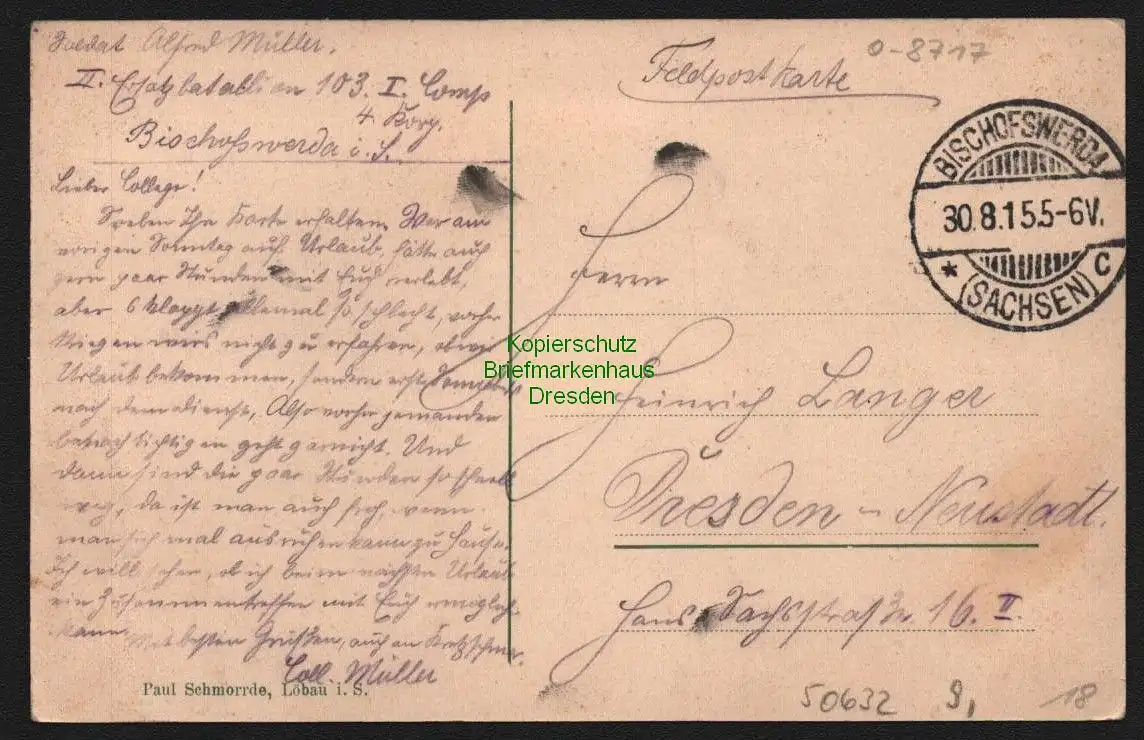 Soldat Alfred Müller.
II. Ersatzbataillon 103. I. Comp
4. Korp.
Bischofswerda i. S.
Lieber College!
Soeben Ihre Karte erhalten. War am
vorigen Sonntag auf Urlaub, hätte auch
gern paar Stunden mit Euch verlebt,
aber es klappt allemal so schlecht, vorher
kriegen wirs nicht zu erfahren, ob wir
Urlaub bekommen, sondern erst Sonnabend
nach dem dienst, Also vorher jemanden
benachrichtigen geht garnicht. Und
dann sind die paar Stunden so schnell
weg, da ist man auch froh, wenn
man sich mal ausruhen kann zu Hause.
Ich will sehen, ob ich beim nächsten Urlaub
ein Zusammentreffen mit Euch ermöglich.
kann.
Mit besten Grüßen, auch an Kretzschmar.
Coll. Müller
Paul Schmorrde, Löbau i. S.
Feldpostkarte
0-8717
BISCHOFSWERDA
30.8.15 5-6V.
* (SACHSEN) C
Herrn
Kopierschutz
Briefmarkenhaus
Dresden
Heinrich Langer
Dresden - Neustadt.
Hans Sachsstraße 16. II
50632
18